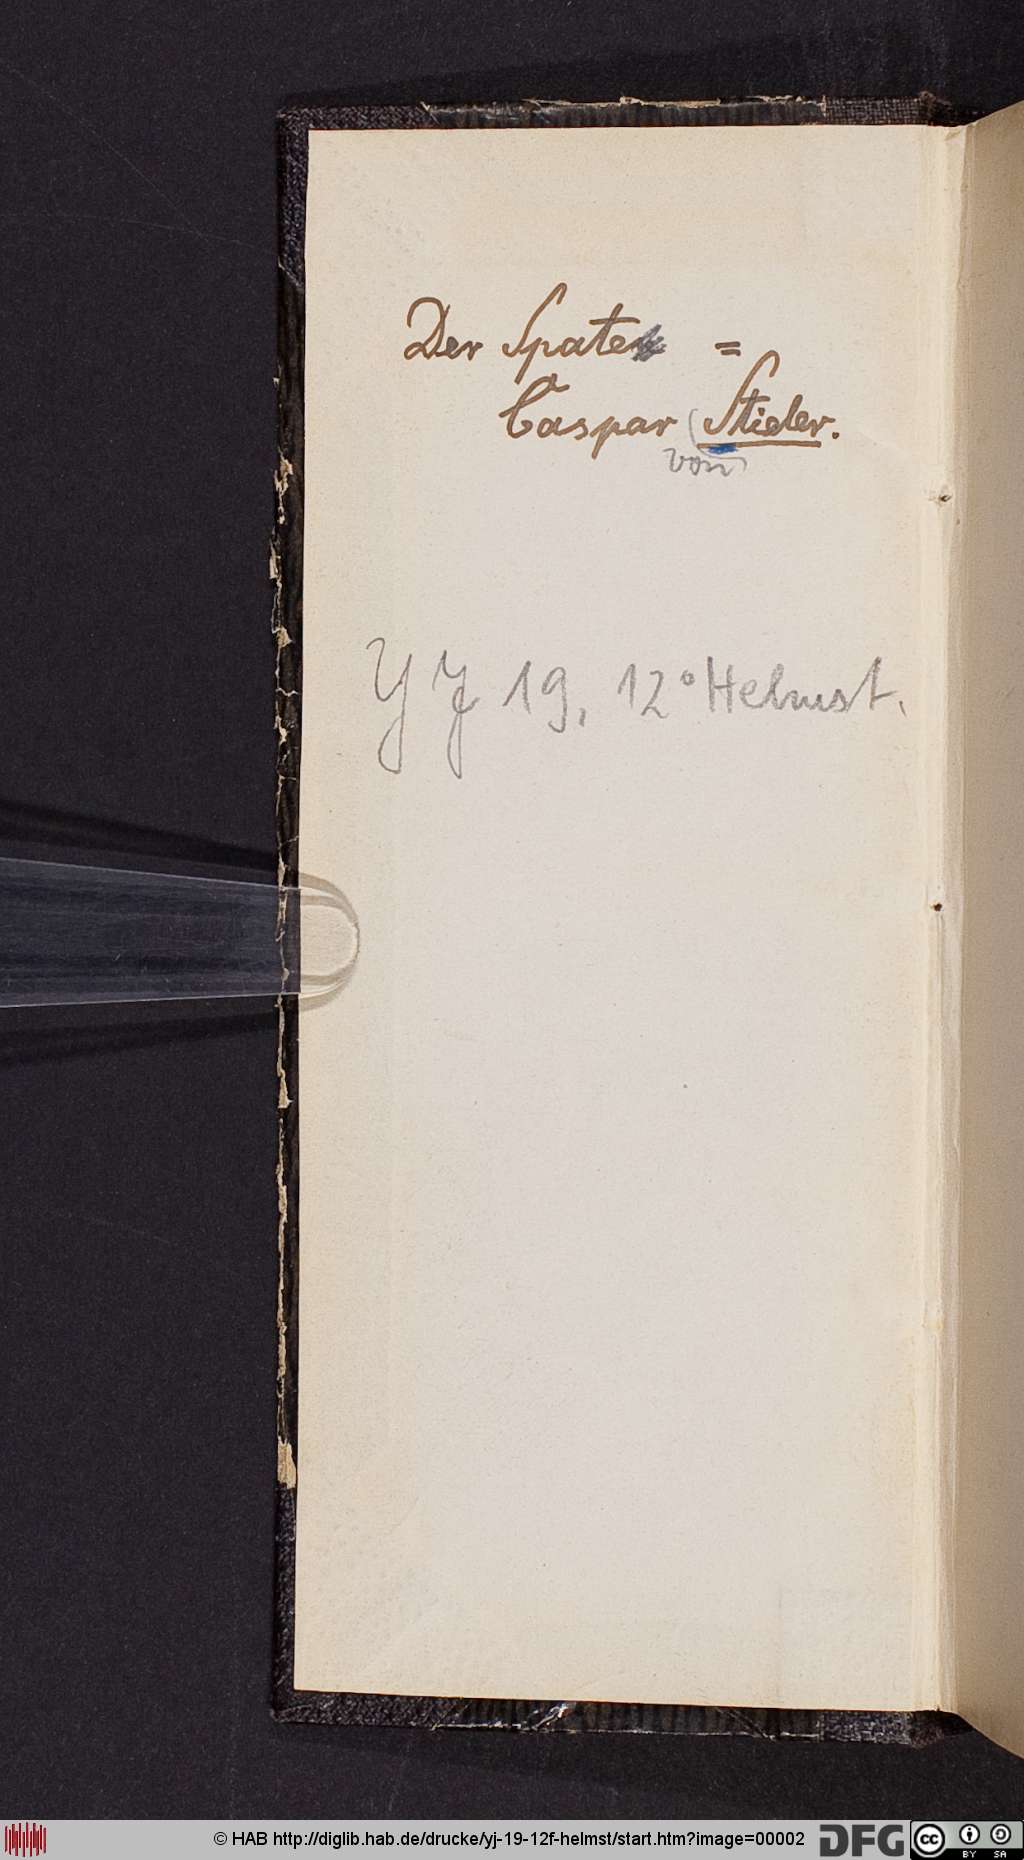 Der Spate =
Caspar Stieler.
von
YJ 19, 12° Helmst.
© HAB http://diglib.hab.de/drucke/yj-19-12f-helmst/start.htm?image=00002
DFG
cc BY SA